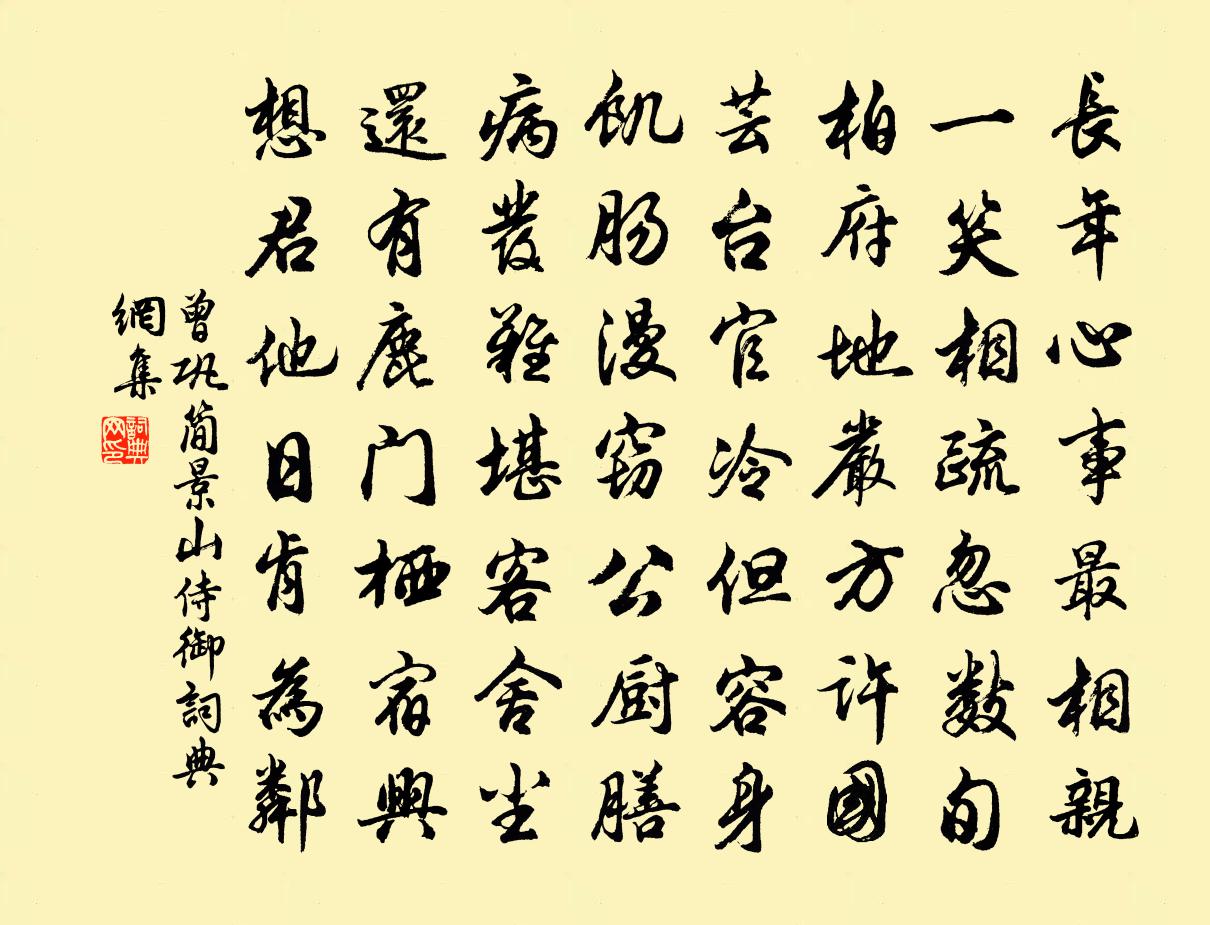 長年心事最相親
一笑相疏忽數旬
柏府地嚴方許國
芸台官冷但容身
飢肠漫窃公厨膳
病發難堪客舍尘
還有鹿门栖宿興
想君他日肯為鄰
曾巩简景山侍御詞典
網集
詞典
网印